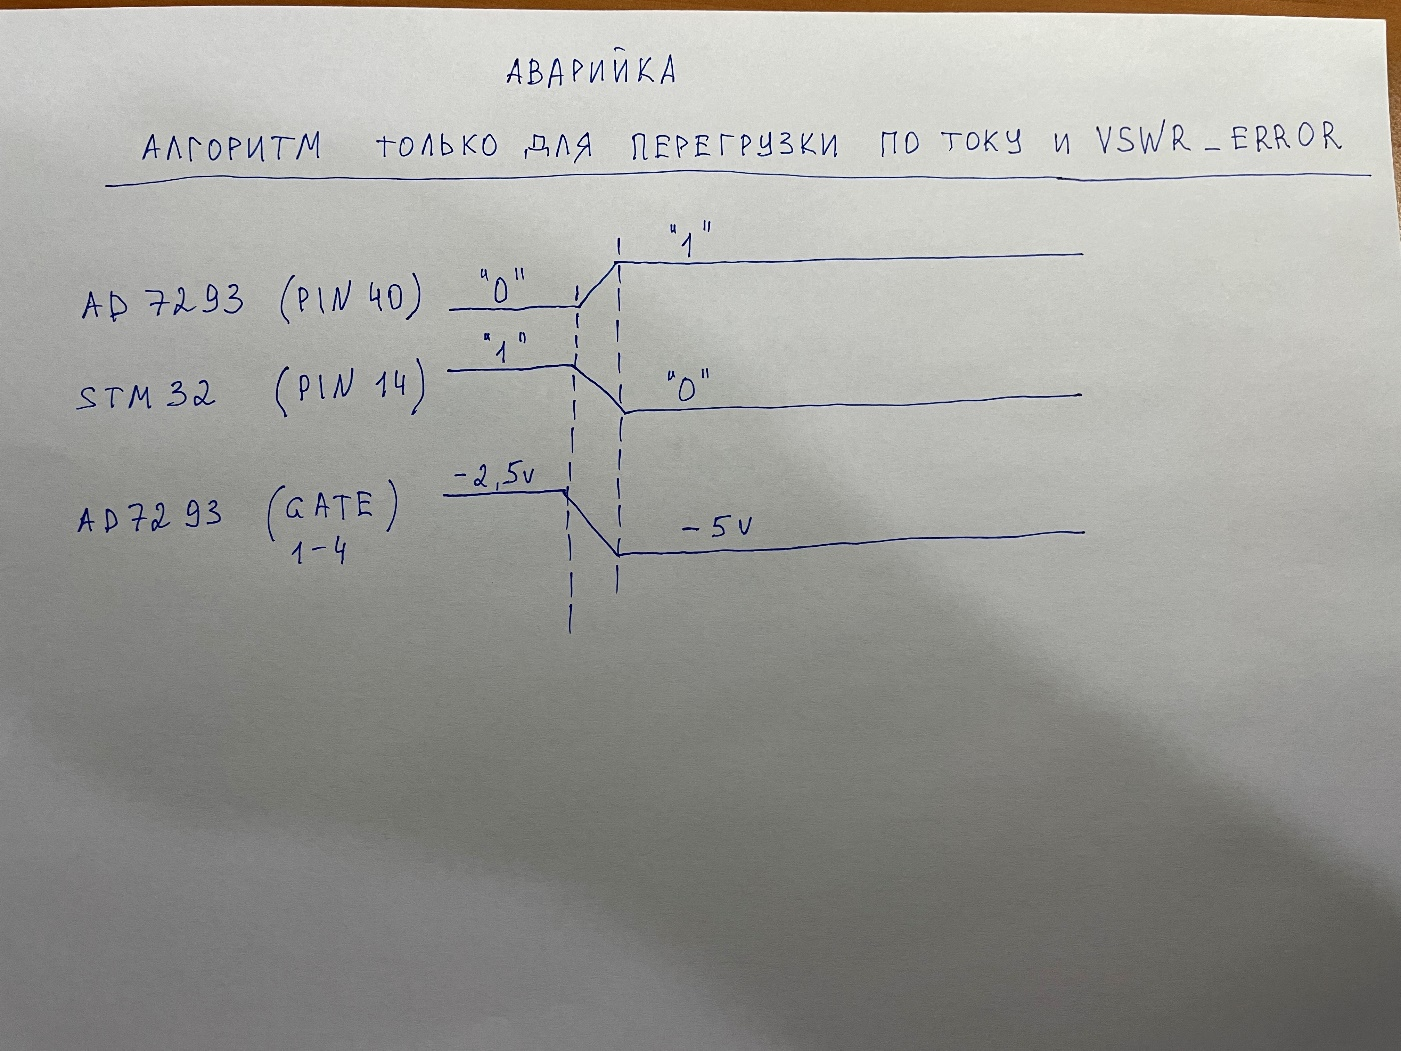 АВАРИЙКА
АЛГОРИТМ ТОЛЬКО ДЛЯ ПЕРЕГРУЗКИ ПО ТОКУ И VSWR_ERROR
AD7293 (PIN 40) "0" "1"
STM32 (PIN 14) "1" "0"
AD7293 (GATE) -2,5v -5v
1-4